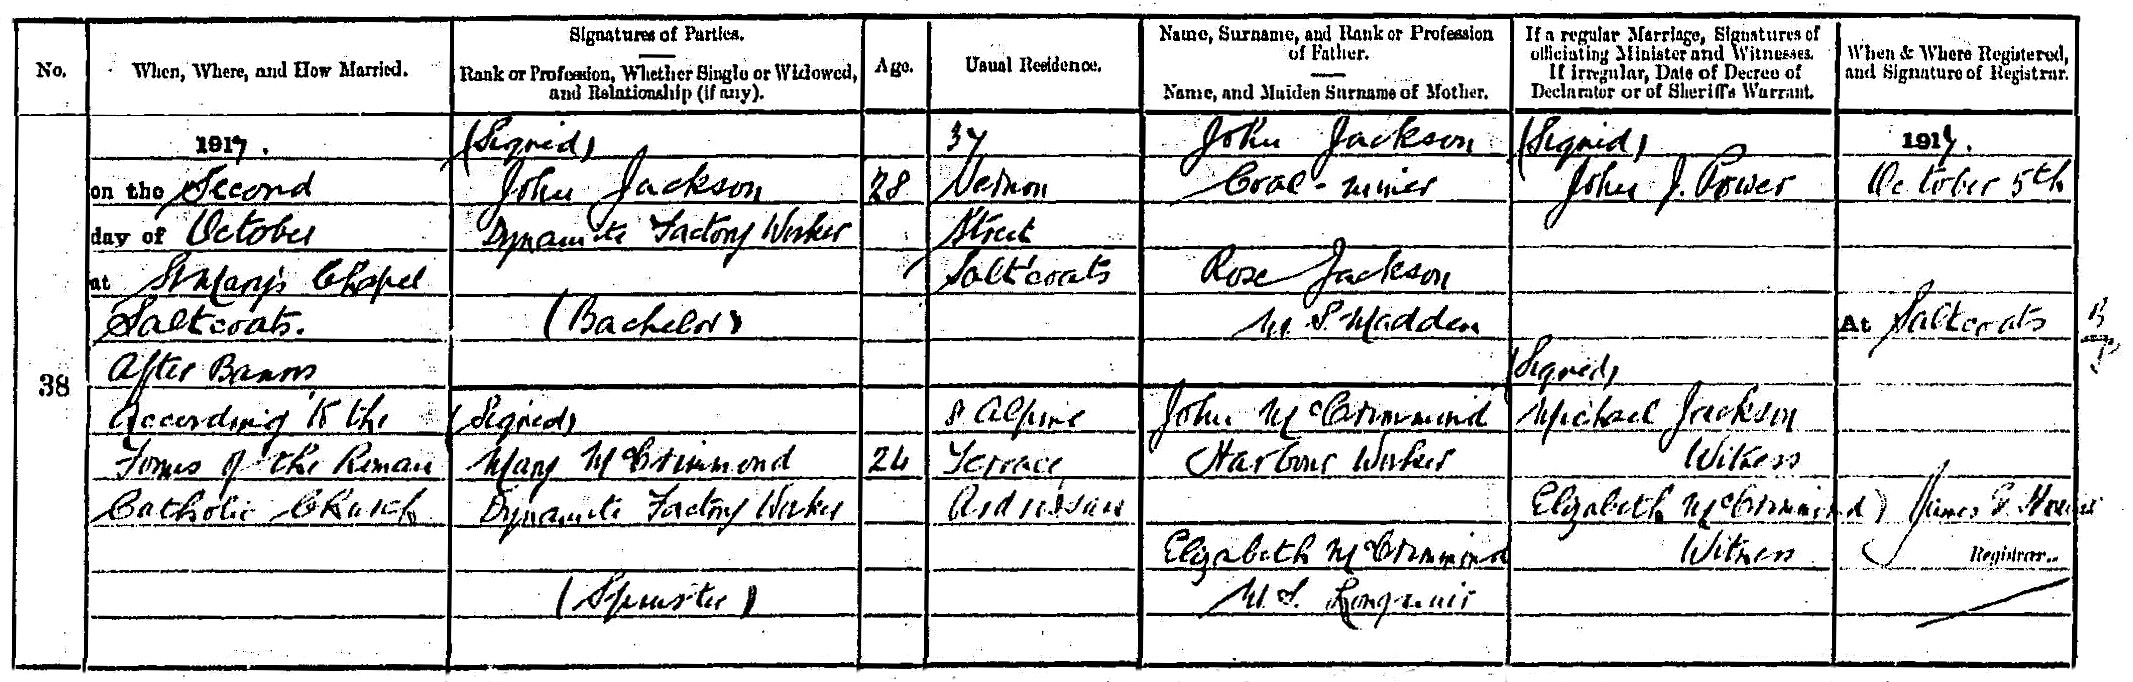 No.
When, Where, and How Married.
Signatures of Parties.
Rank or Profession, Whether Single or Widowed,
and Relationship (if any).
Age.
Usual Residence.
Name, Surname, and Rank or Profession
of Father.
Name, and Maiden Surname of Mother.
If a regular Marriage, Signatures of
officiating Minister and Witnesses.
If irregular, Date of Decree of
Declarator or of Sheriff's Warrant.
When & Where Registered,
and Signature of Registrar.
38
1917.
on the Second
day of October
at St Mary's Chapel
Saltcoats.
After Banns
According to the
Forms of the Roman
Catholic Church
(Signed)
John Jackson
Dynamite Factory Worker
(Bachelor)
(Signed)
Mary McCrimmond
Dynamite Factory Worker
(Spinster)
28
24
37
Vernon
Street
Saltcoats
8 Alpine
Terrace
Ardrossan
John Jackson
Coal-miner
Rose Jackson
M. S. Madden
John McCrimmond
Harbour Worker
Elizabeth McCrimmond
M. S. Longmuir
(Signed)
John J. Power
(Signed)
Michael Jackson
Witness
Elizabeth McCrimmond)
Witness
1917.
October 5th
At Saltcoats
James
Registrar.